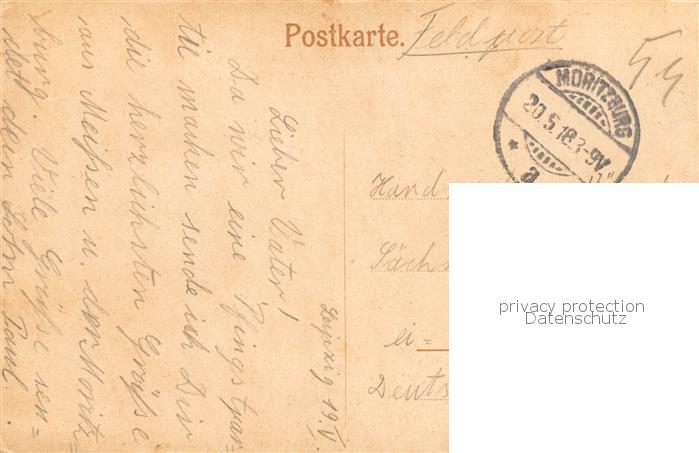 Postkarte.
Feldpost
MORITZBURG
20.5.18.3-9V
a
Leipzig 19.V.
Lieber Vater!
Da wir eine Pfingstpar-
tie machen sende ich Dir
die herzlichsten Grüße
aus Meißen u. der Moritz=
burg. Viele Grüße sen=
det dein Sohn Paul.
Hand
Sächs
ei=
Deuts
privacy protection
Datenschutz